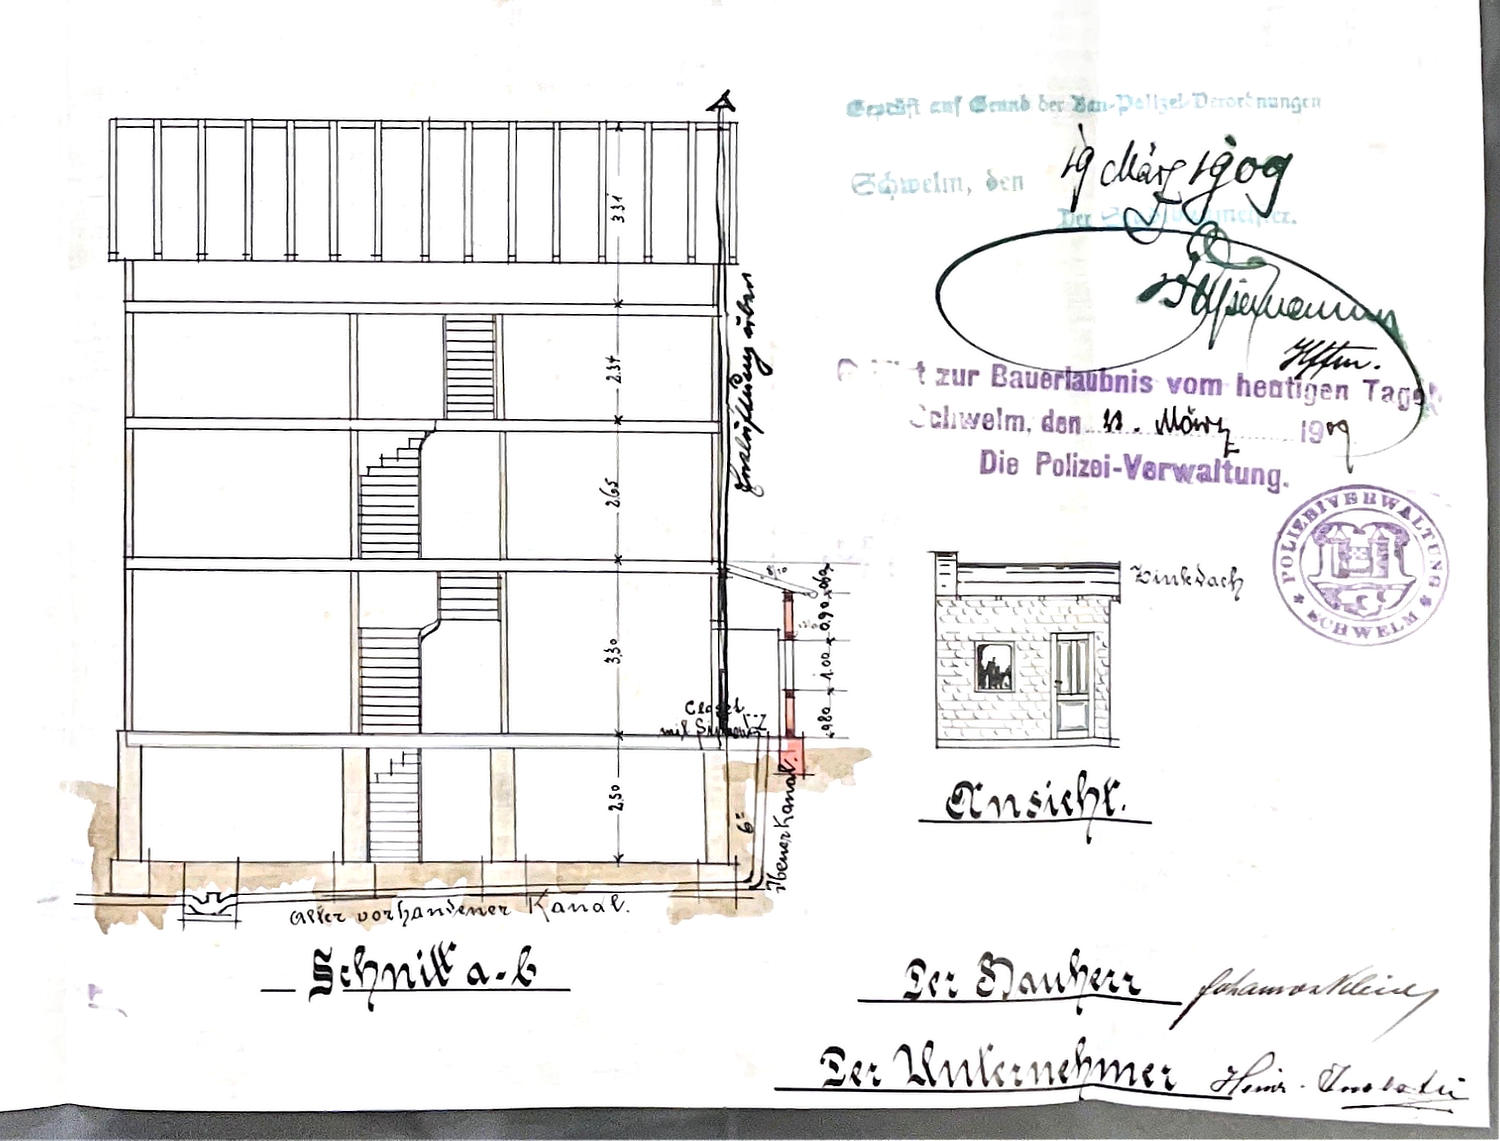 Geprüft auf Grund der Bau-Polizei-Verordnungen
Schwelm, den 19 März 1909
Der Stadtbaumeister.
zur Bauerlaubnis vom heutigen Tage
Schwelm, den März 1909
Die Polizei-Verwaltung.
POLIZEIVERWALTUNG
* SCHWELM *
3.31
2.34
2.65
3,30
2,50
Entlüftung über
0.90
1.00
0,80
Closet
mit
6"
Neuer Kanal.
Alter vorhandener Kanal.
Schnitt a-b
Zinkdach
Ansicht.
Der Bauherr
Der Unternehmer Heinr.